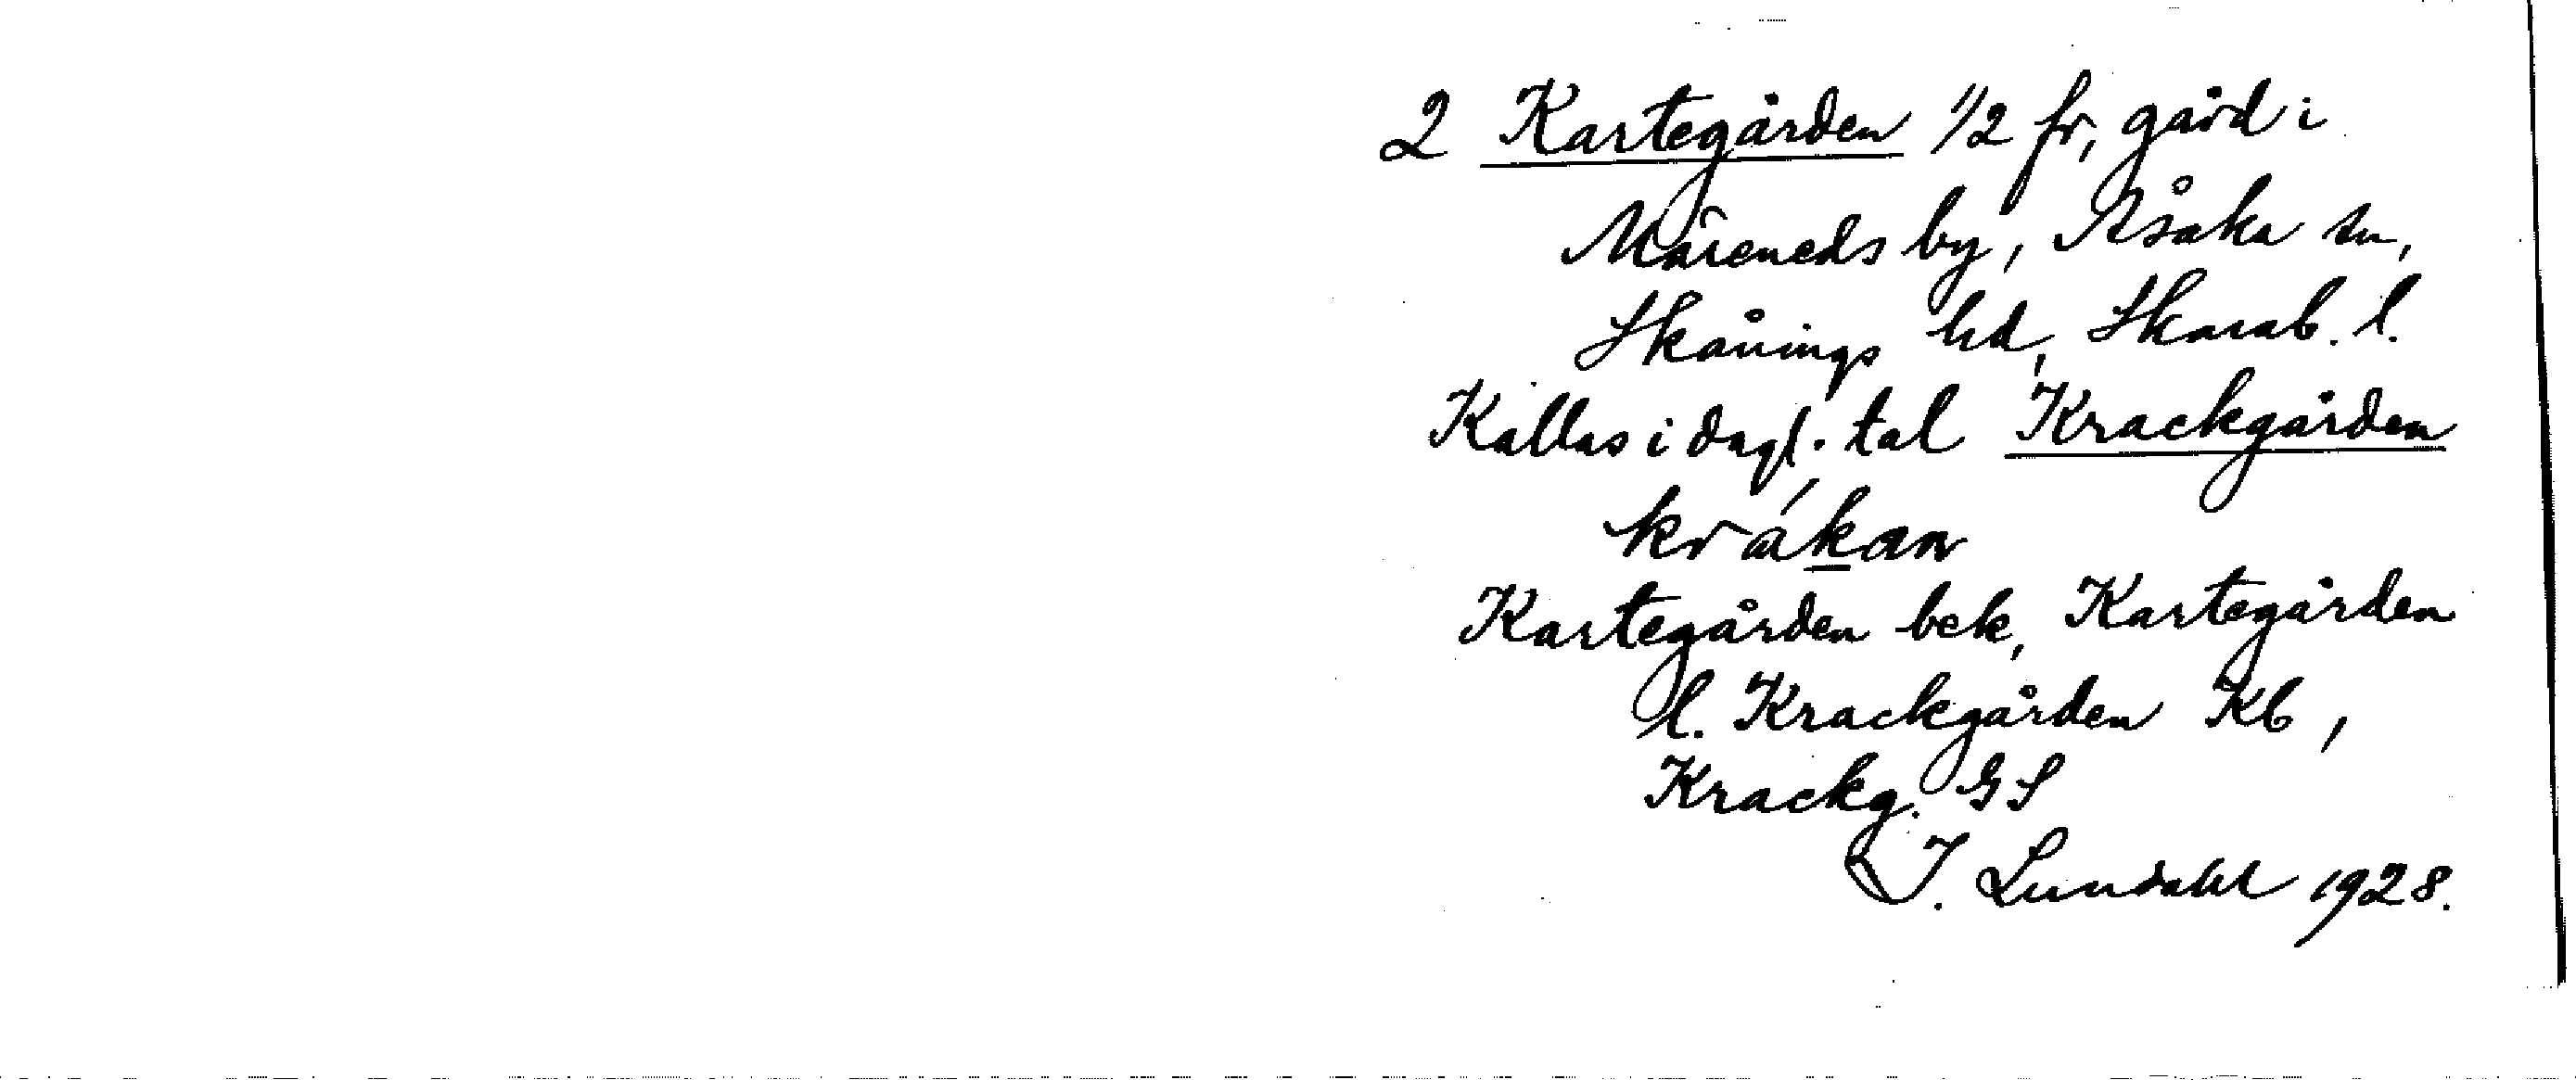 2 Kartegården 1/2 fr, gård i
Måreneds by, Åsaka sn,
Skånings hd, Skarab. l.
Kallas i dagl. tal Krackgården
krákan
Kartegården bek, Kartegården
l. Krackgården Kb,
Krackg. GS
I. Lundahl 1928.